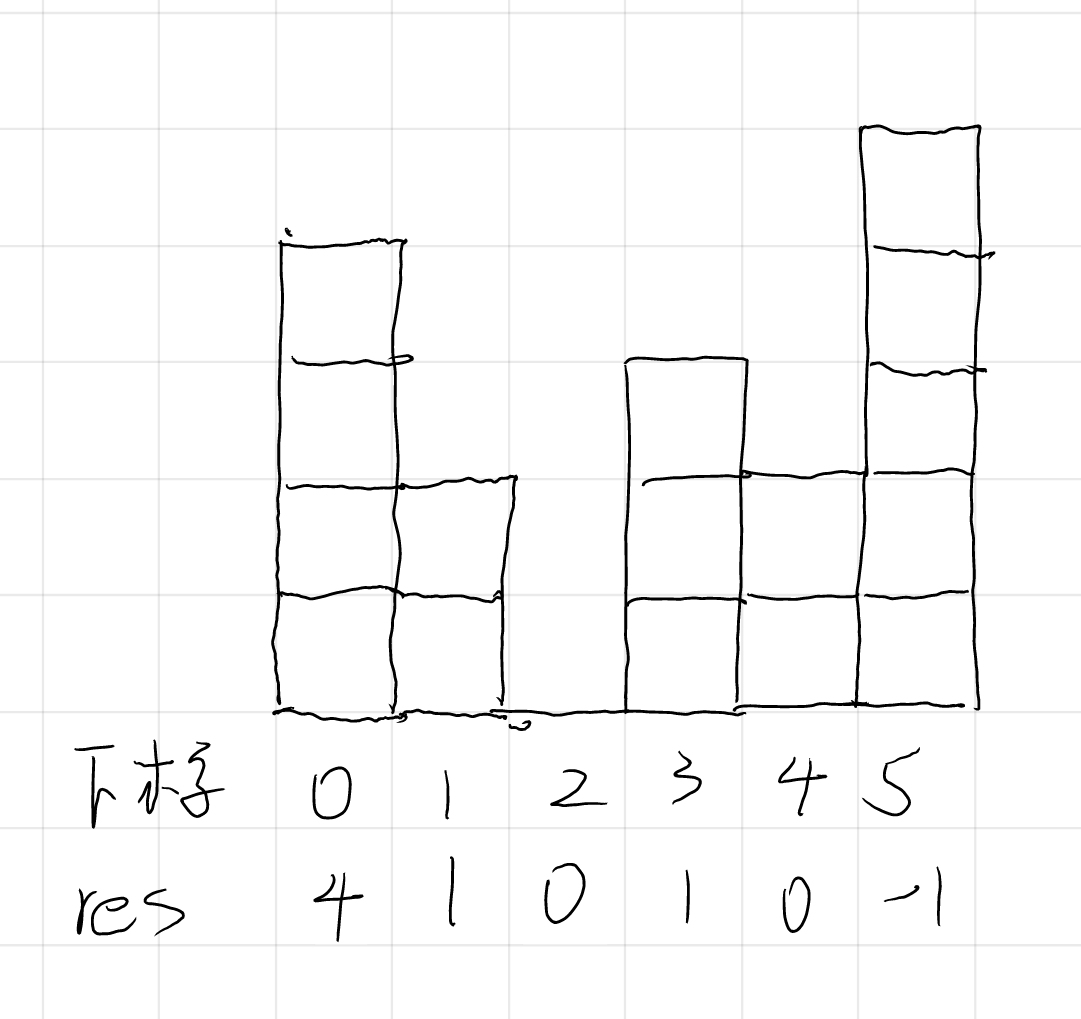 下标 0 1 2 3 4 5
res 4 1 0 1 0 -1